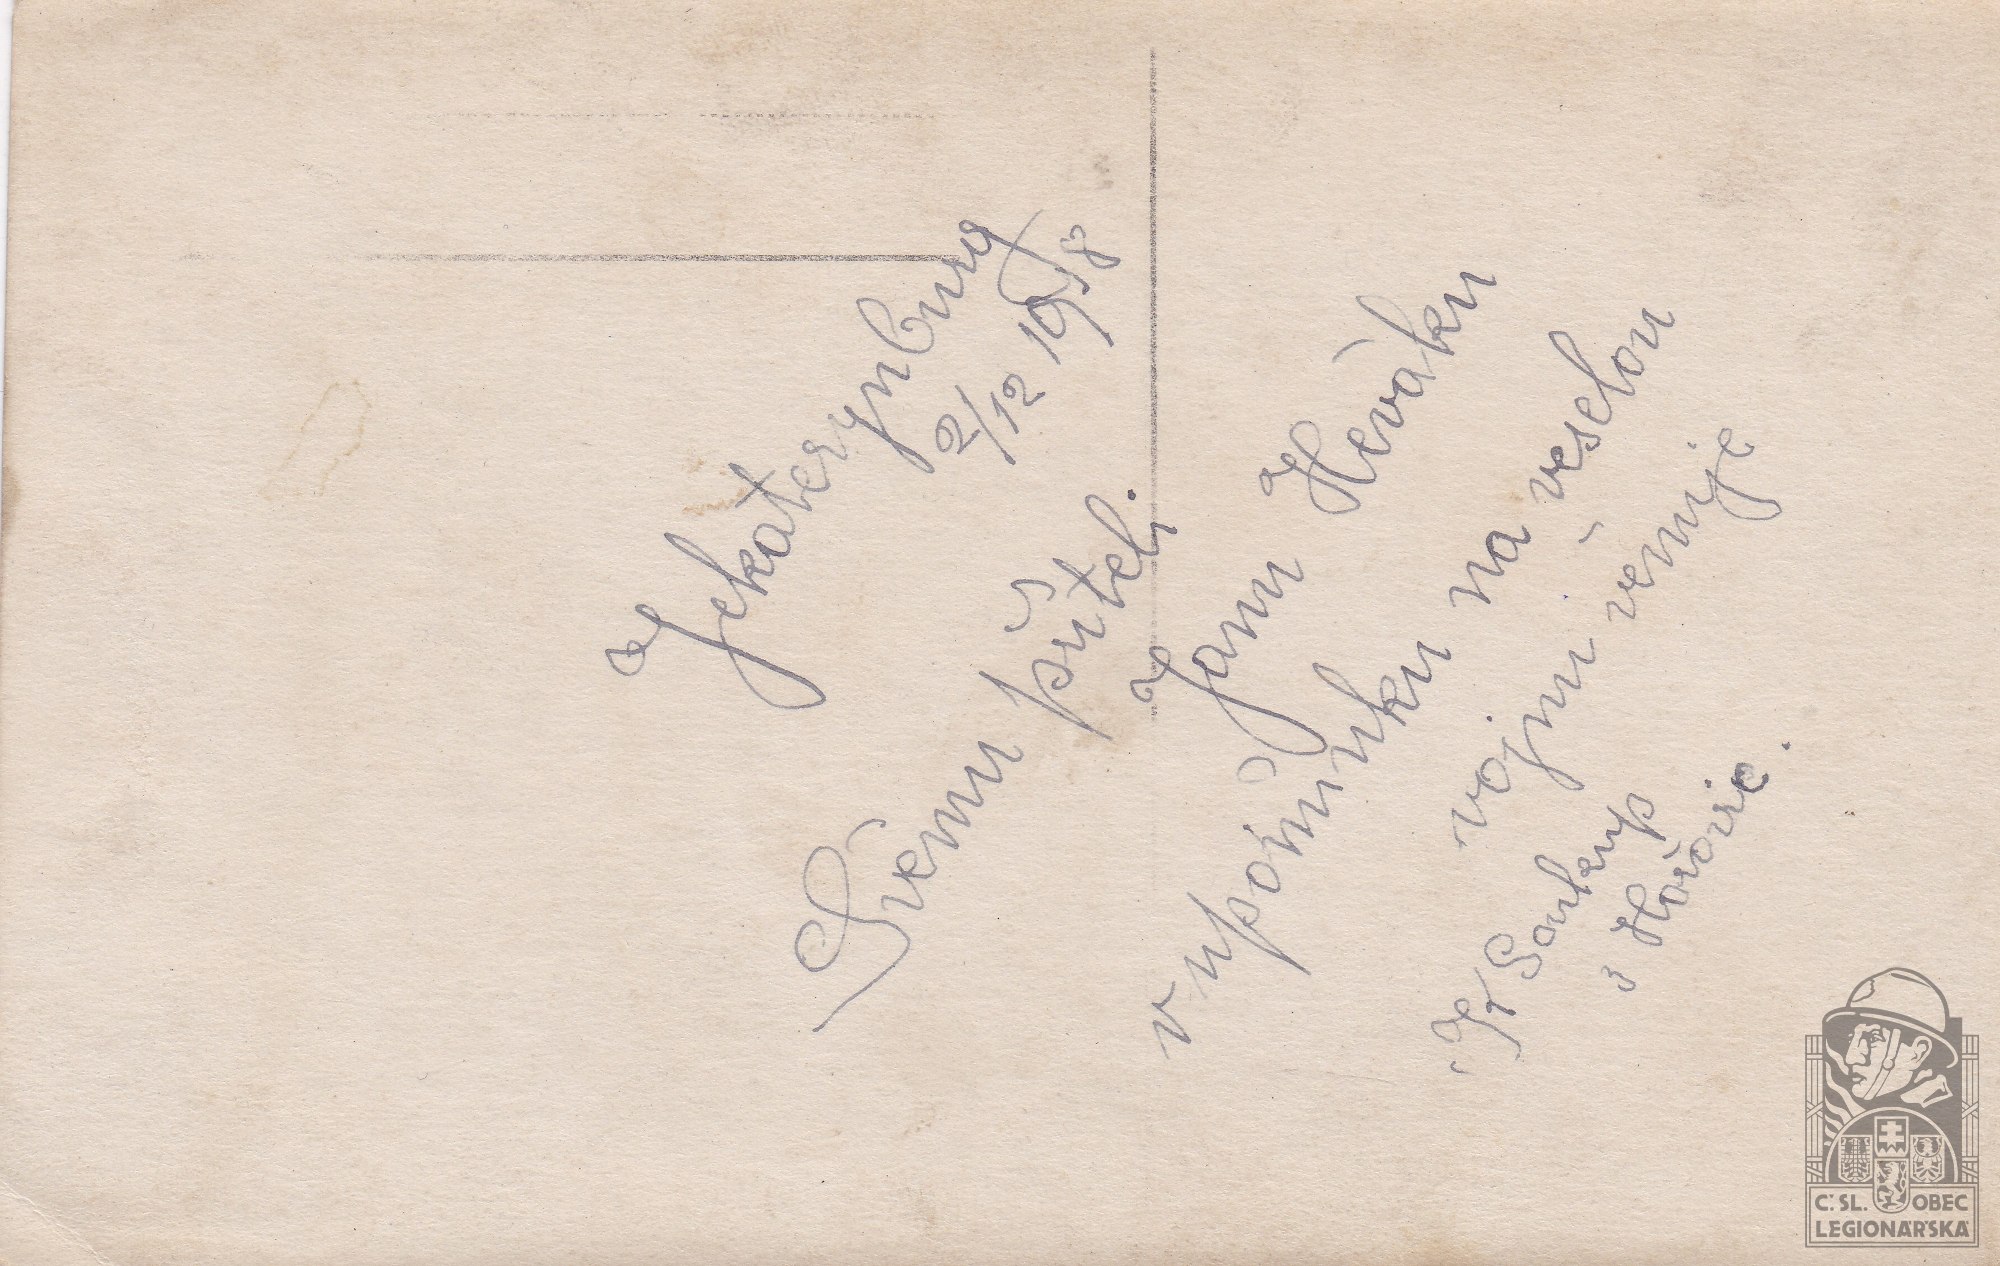 Jekaterynburg
2/12 1918
Svému příteli
Janu Heváku
v upomínku na veselou
vojnu věnuje
Soukup
Hořovic.
Č.SL. OBEC
LEGIONÁŘSKÁ